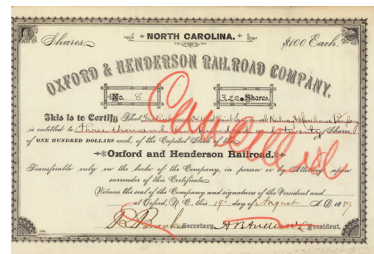 NORTH CAROLINA.
Shares $100 Each.
OXFORD & HENDERSON RAILROAD COMPANY.
No. 8 Shares.
This is to Certify That
is entitled to three thousand and twenty Shares
of ONE HUNDRED DOLLARS each, of the Capital Stock of the
Oxford and Henderson Railroad.
Transferable only on the books of the Company, in person or by Attorney upon
surrender of this Certificate.
Witness the seal of the Company and signature of the President and
at Oxford, N. C., this 19th day of August A.D. 1887
Secretary. President.
Cancelled